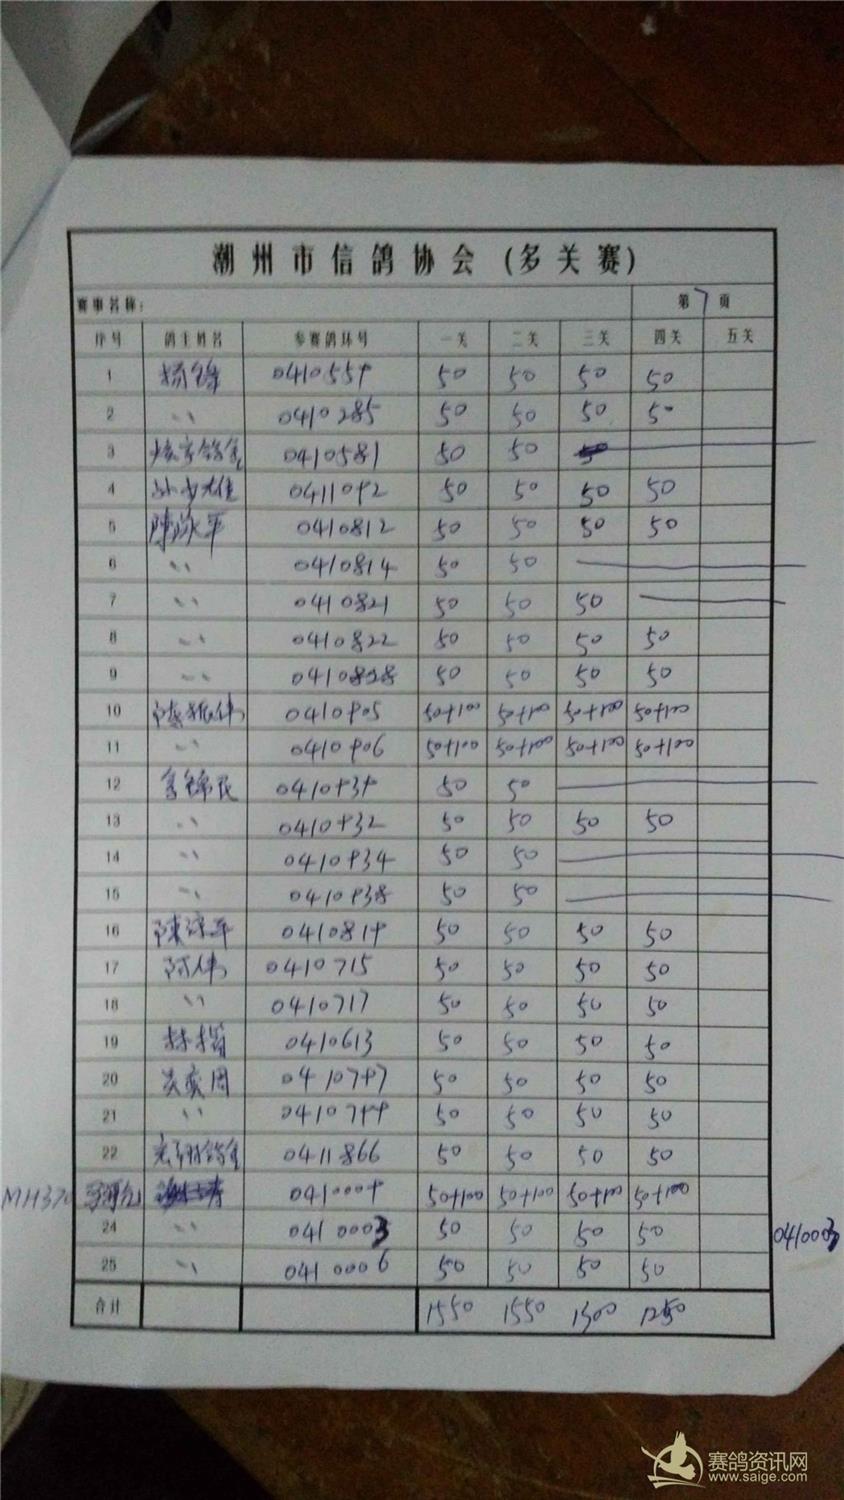 潮州市信鸽协会(多关赛)
赛事名称: 第7页
序号 鸽主姓名 参赛鸽环号 一关 二关 三关 四关 五关
1 杨锋 0410559 50 50 50 50
2 〃 0410285 50 50 50 50
3 0410581 50 50
4 0411092 50 50 50 50
5 陳泳平 0410812 50 50 50 50
6 〃 0410814 50 50
7 〃 0410821 50 50 50
8 〃 0410822 50 50 50 50
9 〃 0410828 50 50 50 50
10 0410905 50+100 50+100 50+100 50+100
11 〃 0410906 50+100 50+100 50+100 50+100
12 0410939 50 50
13 〃 0410932 50 50 50 50
14 〃 0410934 50 50
15 〃 0410938 50 50
16 0410819 50 50 50 50
17 阿伟 0410715 50 50 50 50
18 〃 0410717 50 50 50 50
19 0410613 50 50 50 50
20 0410747 50 50 50 50
21 〃 0410744 50 50 50 50
22 0411866 50 50 50 50
MH370 0410009 50+100 50+100 50+100 50+100
24 〃 0410003 50 50 50 50 0410003
25 〃 0410006 50 50 50 50
合计 1550 1550 1300 1250
赛鸽资讯网
www.saige.com